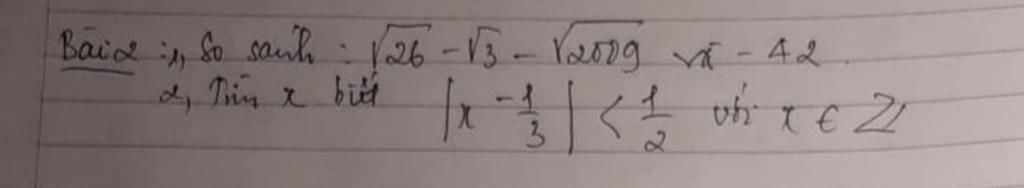 Bài 2 : 1, So sánh : √26 - √3 - √2009 và - 42.
2, Tìm x biết |x - 1/3| < 1/2 với x ∈ Z